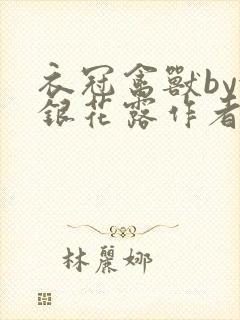 衣冠禽獸by
銀花露作者
林麗娜